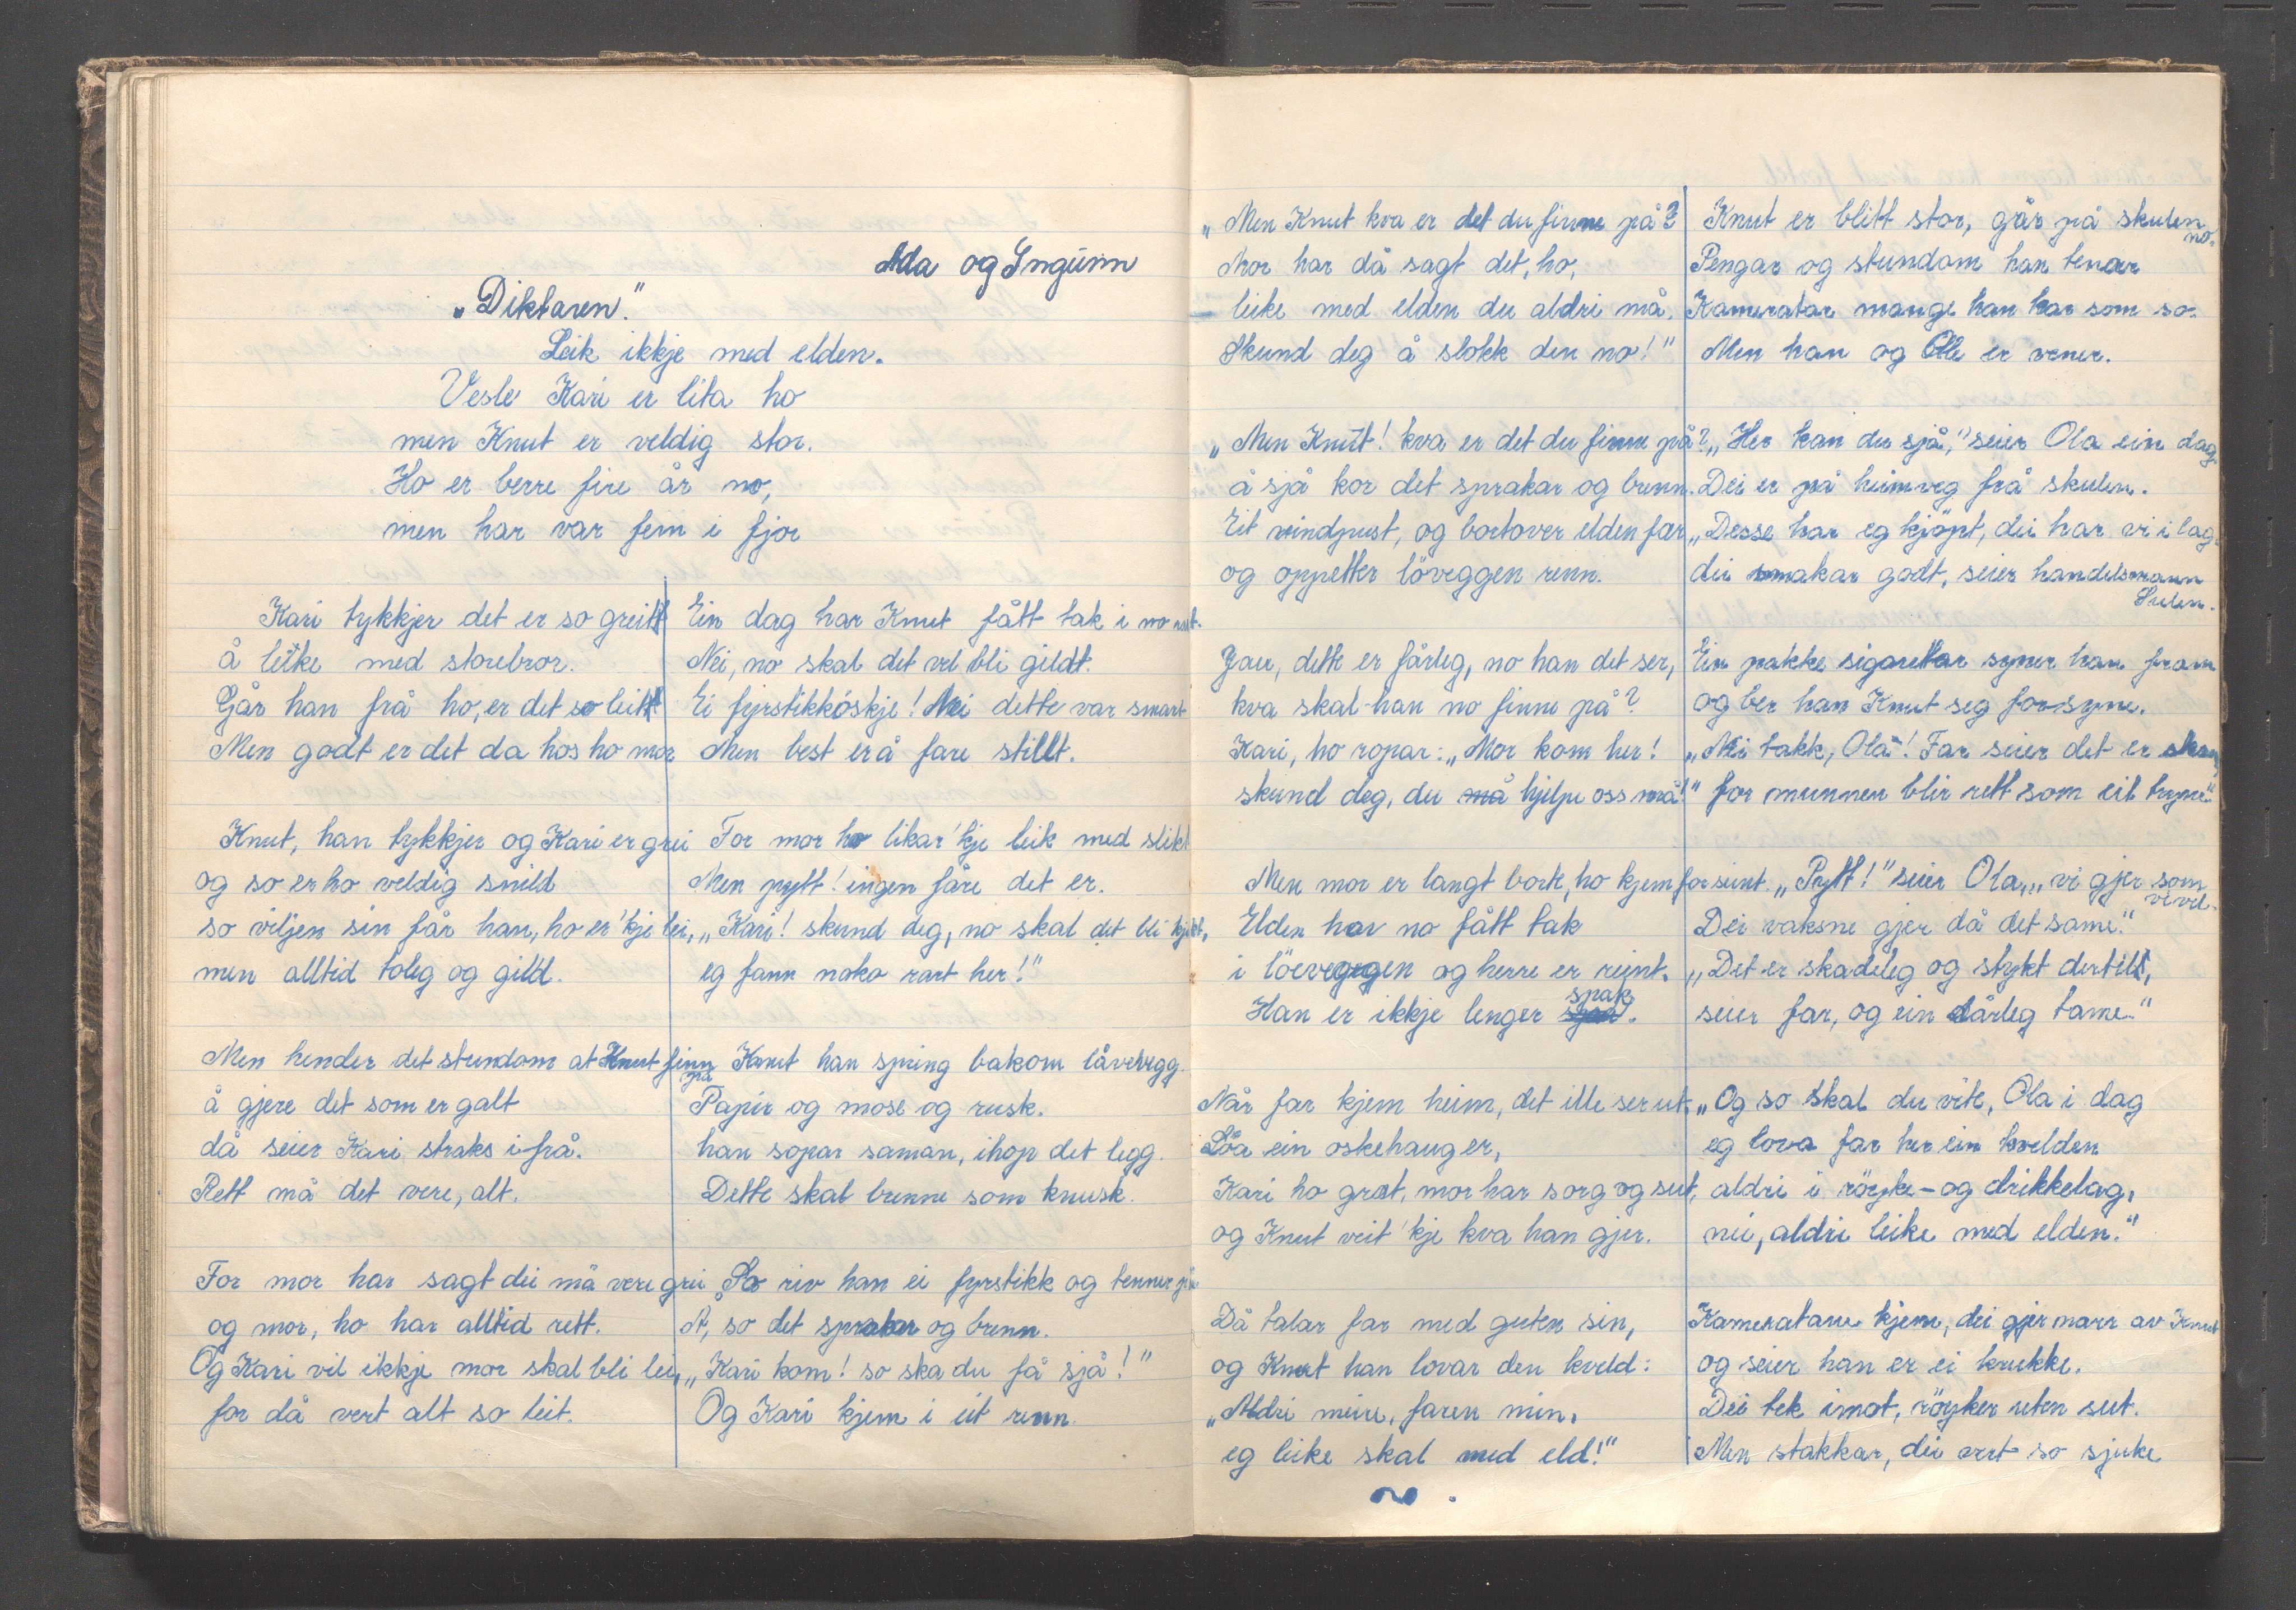 Ada og Ingunn
„Diktaren."
Leik ikkje med elden.
Vesle Kari er lita ho
men Knut er veldig stor.
Ho er berre fire år no,
men han var fem i fjor
Kari tykkjer det er so greitt
å leike med storebror.
Går han frå ho, er det so leitt
Men godt er det da hos ho mor
Knut, han tykkjer og Kari er grei
og so er ho veldig snild
so viljen sin får han, ho er'kje lei,
men alltid toleg og gild.
Men hender det stundom at Knut finn
på
å gjere det som er galt
då seier Kari straks ifrå.
Rett må det vere, alt.
For mor har sagt dei må vere grei
og mor, ho har alltid rett.
Og Kari vil ikkje mor skal bli lei,
for då vert alt so leit.
Ein dag har Knut fått tak i no
Nei, no skal det vel bli gildt.
Ei fyrstikköskje! Nei dette var smart
Men best er å fare stillt.
For mor ho likar'kje leik med slikt
Men pytt! ingen fåre det er.
„Kari! skund deg, no skal det bli
eg fann noko rart her!"
Knut han spring bakom låvevegg.
Papir og mose og rusk.
han sopar saman, ihop det legg.
Dette skal brenne som knusk.
So riv han ei fyrstikk og tenner på
Å, so det sprakar og brenn.
„Kari kom! so ska du få sjå!"
Og Kari kjem i eit renn.
„Men Knut kva er det du finne på?
Mor har då sagt det, ho,
leike med elden du aldri må.
Skund deg å slokk den no!"
„Men Knut! kva er det du finne på?
å sjå kor det sprakar og brenn.
Eit vindpust, og bortover elden far
og oppetter löveggen renn.
Jau, dette er fårleg, no han det ser,
kva skal han no finne på?
Kari, ho ropar: „Mor kom her!
skund deg, du må hjelpe oss må!"
Men mor er langt bort, ho kjem for seint.
Elden har no fått tak
i löeveggen og herre er reint.
Han er ikkje lenger spak.
Når far kjem heim, det ille ser ut.
Löa ein oskehaug er,
Kari ho græt, mor har sorg og sut,
og Knut veit'kje kva han gjer.
Då talar far med guten sin,
og Knut han lovar den kveld:
„Aldri meire, faren min,
eg leike skal med eld!"
Knut er blitt stor, går på skulen
no.
Pengar og stundom han tenar
Kameratar mange han har som so.
Men han og Olle er vener.
„Her kan du sjå," seier Ola ein dag.
Dei er på heimveg frå skulen.
„Desse har eg kjöpt, dei har vi i lag.
dei smakar godt, seier handelsmann
Hulen.
Ein pakke sigarettar syner han fram
og ber han Knut seg forsyne.
„Nei takk, Ola"! Far seier det er skam,
for munnen blir rett som eit tryne."
„Pytt!" seier Ola, „vi gjer som
vi vil.
Dei vaksne gjer då det same."
„Det er skadeleg og stykt dertil,
seier far, og ein dårleg tame."
„Og so skal du vite, Ola i dag
eg lova far her ein kvelden
aldri i röyke- og drikkelag,
nei, aldri leike med elden."
Kameratane kjem, dei gjer narr av Knut
og seier han er ei krukke.
Dei tek imot, röyker uten sut.
Men stakkar, dei vert so sjuke